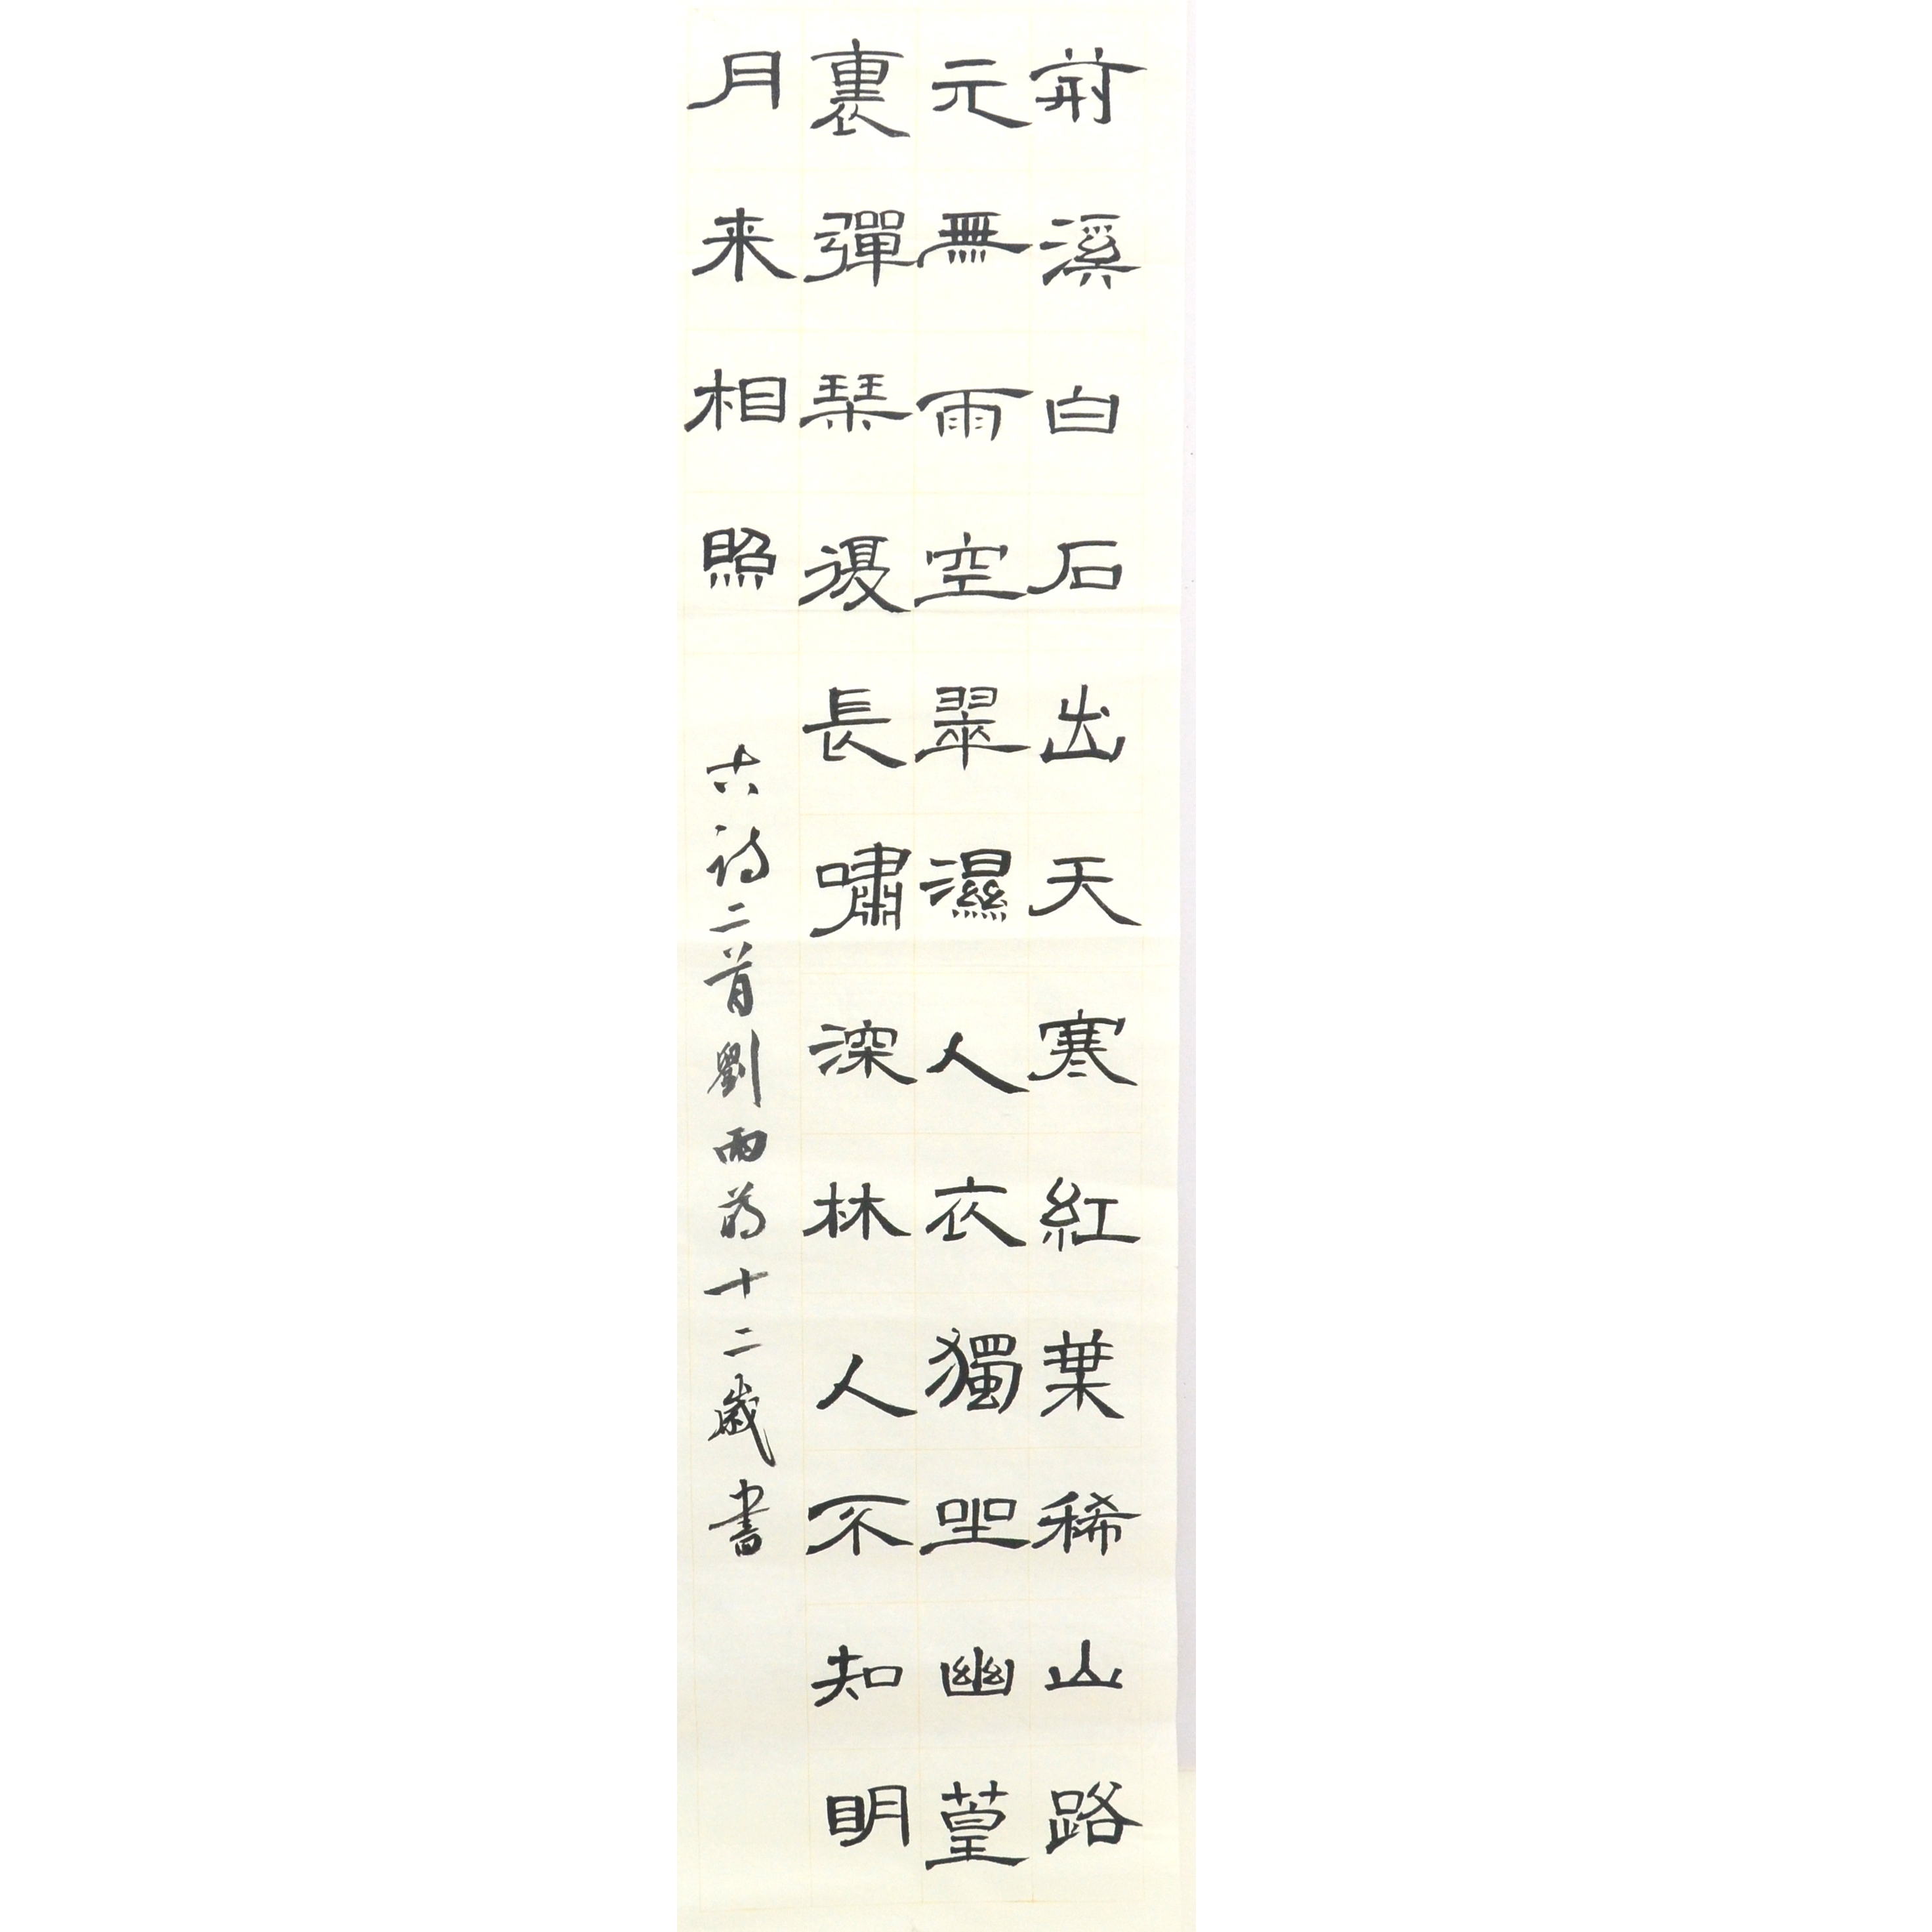 荊溪白石出天寒紅葉稀山路
元無雨空翠濕人衣獨坐幽篁
裏彈琴復長嘯深林人不知明
月来相照
古詩二首劉雨為十二歲書